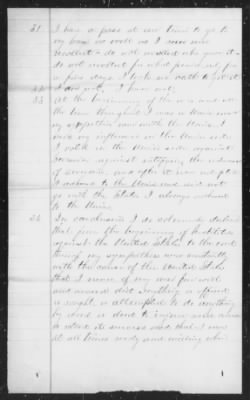 31 I had a pass at one time to go to
my home as well as I can now
recollect. I do not recollect who gave it. I
do not recollect for what period, not for
a few days. I took no oath to get it.
32 I am not. I have not.
33 At the beginning of the war and all
the time through it I was a Union man
my sympathies were with the Union. I
used my influence on the Union side
I voted on the Union side against
Secession against ratifying the ordinance
of secession, and after it was ratified
I adhered to the Union and did not
go with the State. I always adhered
to the Union.
34 In conclusion I do solemnly declare
that from the beginning of hostilities
against the United States to the end
thereof my sympathies were constantly
with the cause of the United States
that I never of my own free will
and accord did anything or offered
or sought or attempted to do anything
by word or deed to injure said cause
or retard its success and that I was
at all times ready and willing when